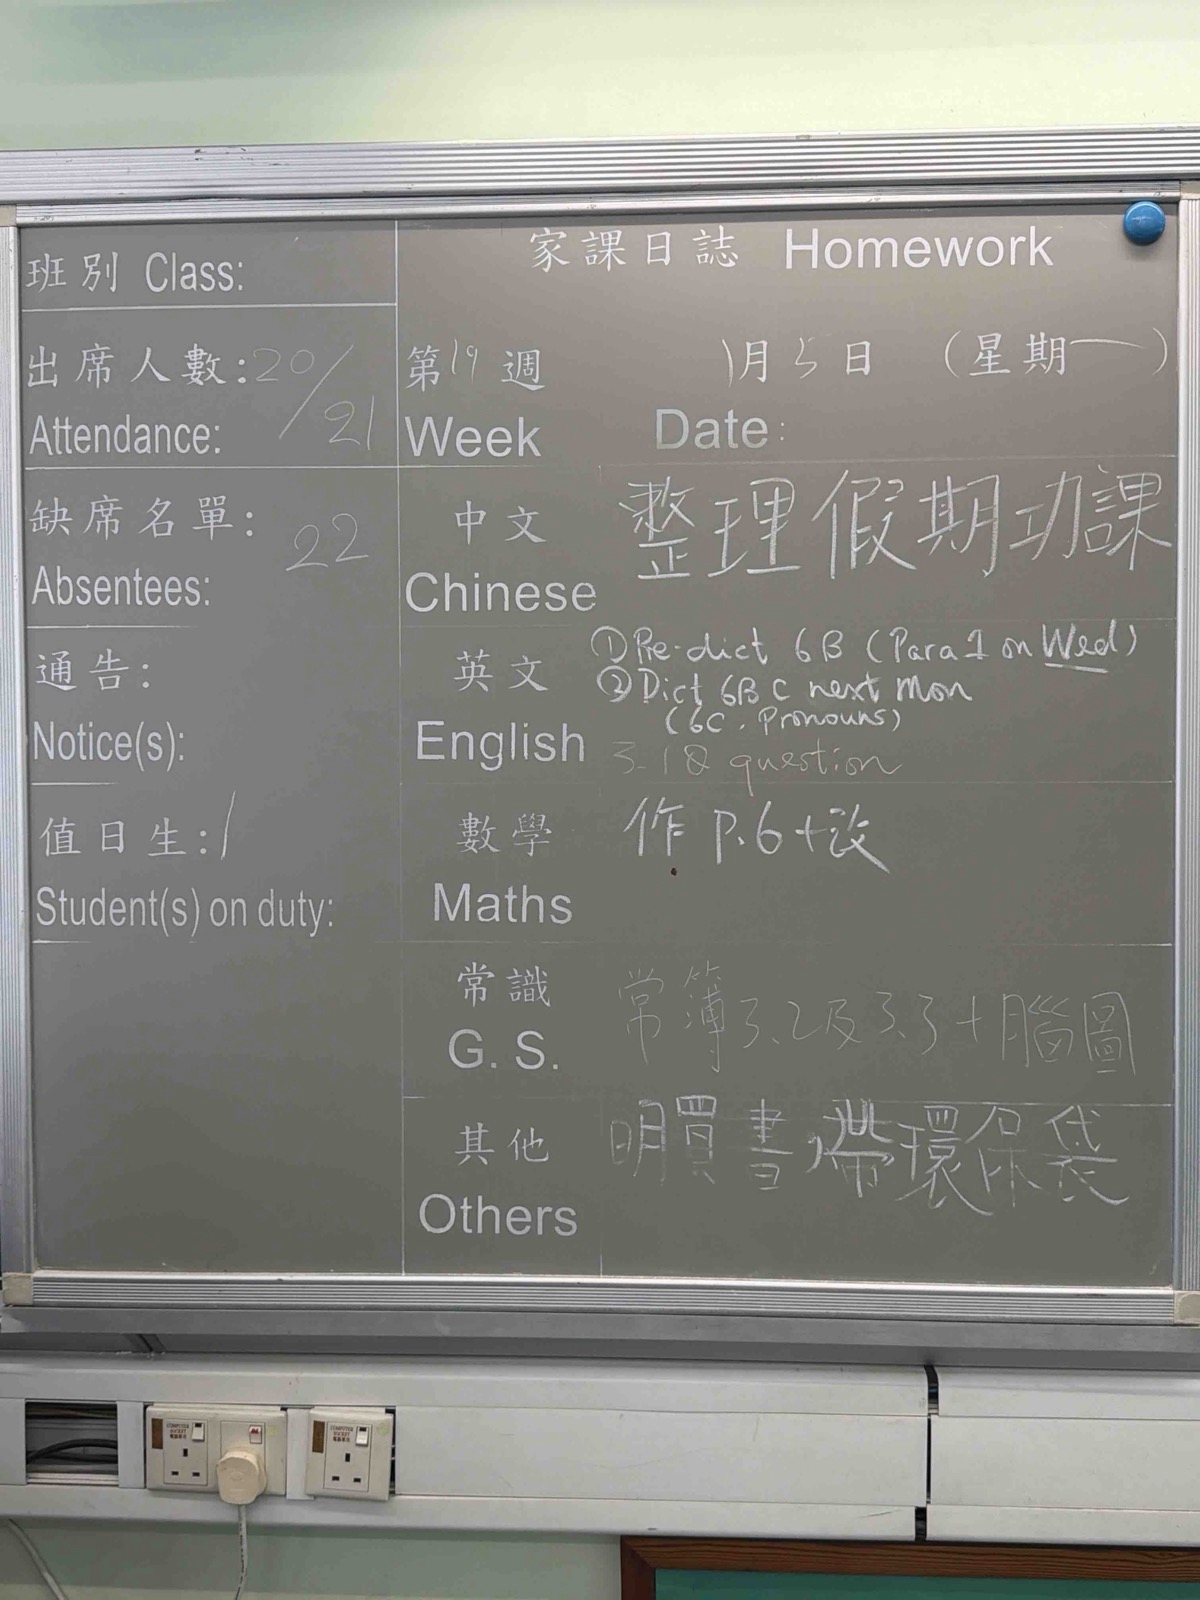 家課日誌 Homework
班別 Class:
出席人數: 20/21
Attendance:
第19週 1月5日 (星期一)
Week Date:
缺席名單: 22
Absentees:
中文 整理假期功課
Chinese
通告:
Notice(s):
英文 ① Pre-dict 6B (Para 1 on Wed)
② Dict 6B C next Mon
(6C. Pronouns)
English 3. 18 question
值日生: 1
Student(s) on duty:
數學 作 P.6+改
Maths
常識 常簿3.2及3.3+腦圖
G. S.
其他 明買書,帶環保袋
Others
COMPUTER
SOCKET
COMPUTER
SOCKET